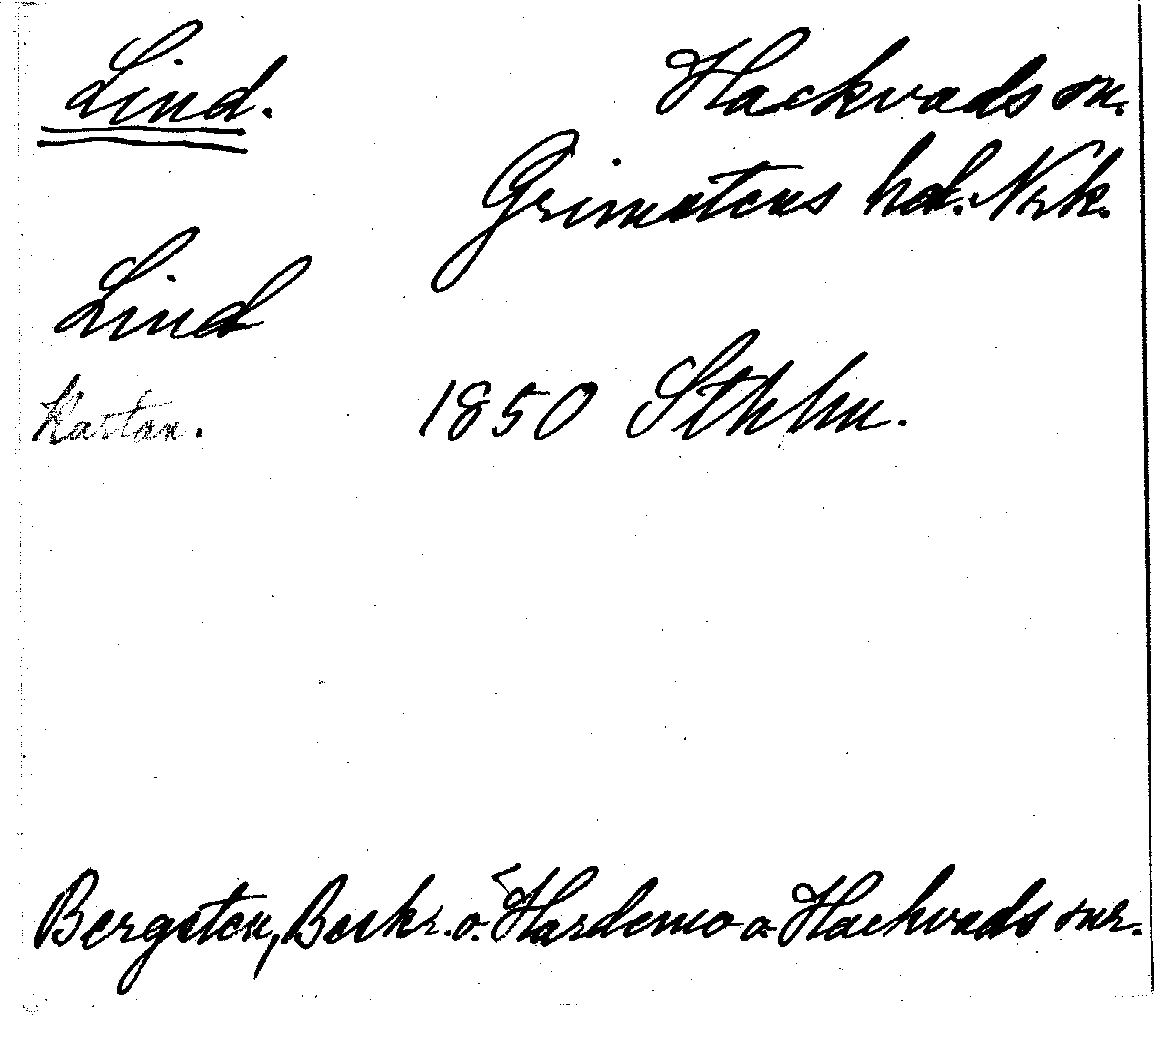 Lind. Hackvads sn.
Grimstens hd. Nrk.
Lind
Kartan. 1850 Sthlm.
Bergsten, Beskr. o. Hardemo o Hackvads snr.